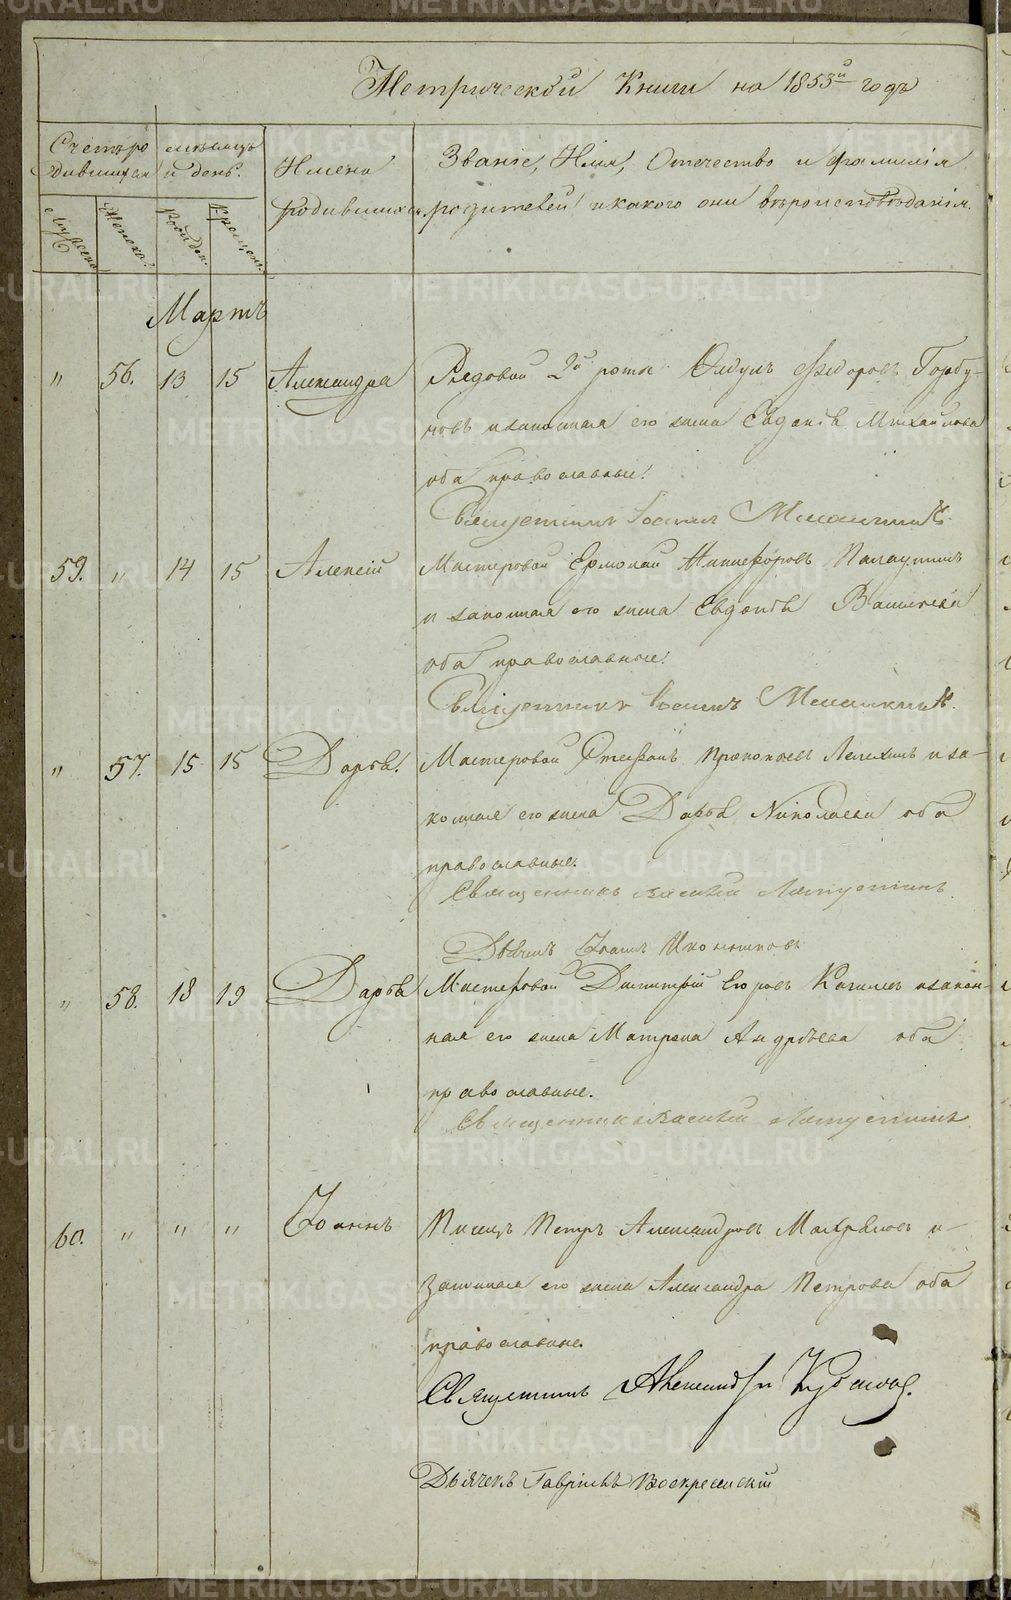 Метрической Книги на 1853й годъ
Счетъ родившихся
месяцъ и день.
Имена родившихся.
Званіе, Имя, Отечество и фамилія
родителей и какого они вѣроисповѣданія.
Мужеска
Женска
Рожден.
Крещен.
Мартъ
" 56. 13 15 Александра Рядовой 2й роты Ѳедоровъ Горбу-
новъ и законная его жена Евдокія Михайлова
оба православные.
Священникъ
59. " 14 15 Алексій Мастеровой Ермолай Никифоровъ
и законная его жена Евдокія Васильева
оба православные.
Священникъ
" 57. 15 15 Дарья. Мастеровой Стефанъ Прокопьевъ и за-
конная его жена Дарья Николаева оба
православные.
Священникъ Василій
Дьячекъ Іоаннъ Иконниковъ
" 58. 18 19 Дарья Мастеровой Димитрій Егоровъ и закон-
ная его жена Матрона Андрѣева оба
православные.
Священникъ Василій
60. " " " Іоаннъ Писецъ Петръ Александровъ и
законная его жена Александра Петрова оба
православные.
Священникъ Александръ
Дьячекъ Гавріилъ Воскресенскій
METRIKI.GASO-URAL.RU